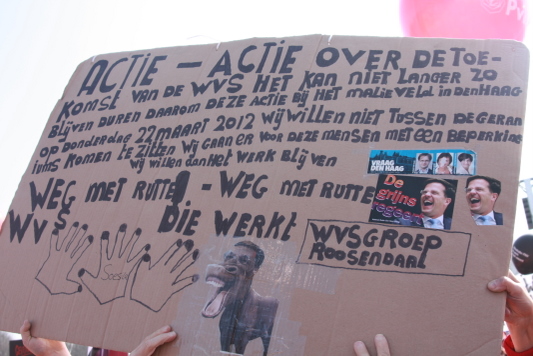 ACTIE - ACTIE OVER DE TOE-
KOMST VAN DE WVS HET KAN NIET LANGER ZO
BLIJVEN DUREN DAAROM DEZE ACTIE BIJ HET MALIEVELD IN DEN HAAG
OP DONDERDAG 22 MAART 2012 WIJ WILLEN NIET TUSSEN DE GERAN
IEMS KOMEN TE ZITTEN WIJ GAAN ER VOOR DEZE MENSEN MET EEN BEPERKING
WIJ WILLEN DAN HET WERK BLIJVEN
VRAAG
DEN HAAG
WEG MET RUTTE! - WEG MET RUTTE
De
grijns
regeert
WVS DIE WERKT
WVSGROEP
ROOSENDAAL
Sociaal